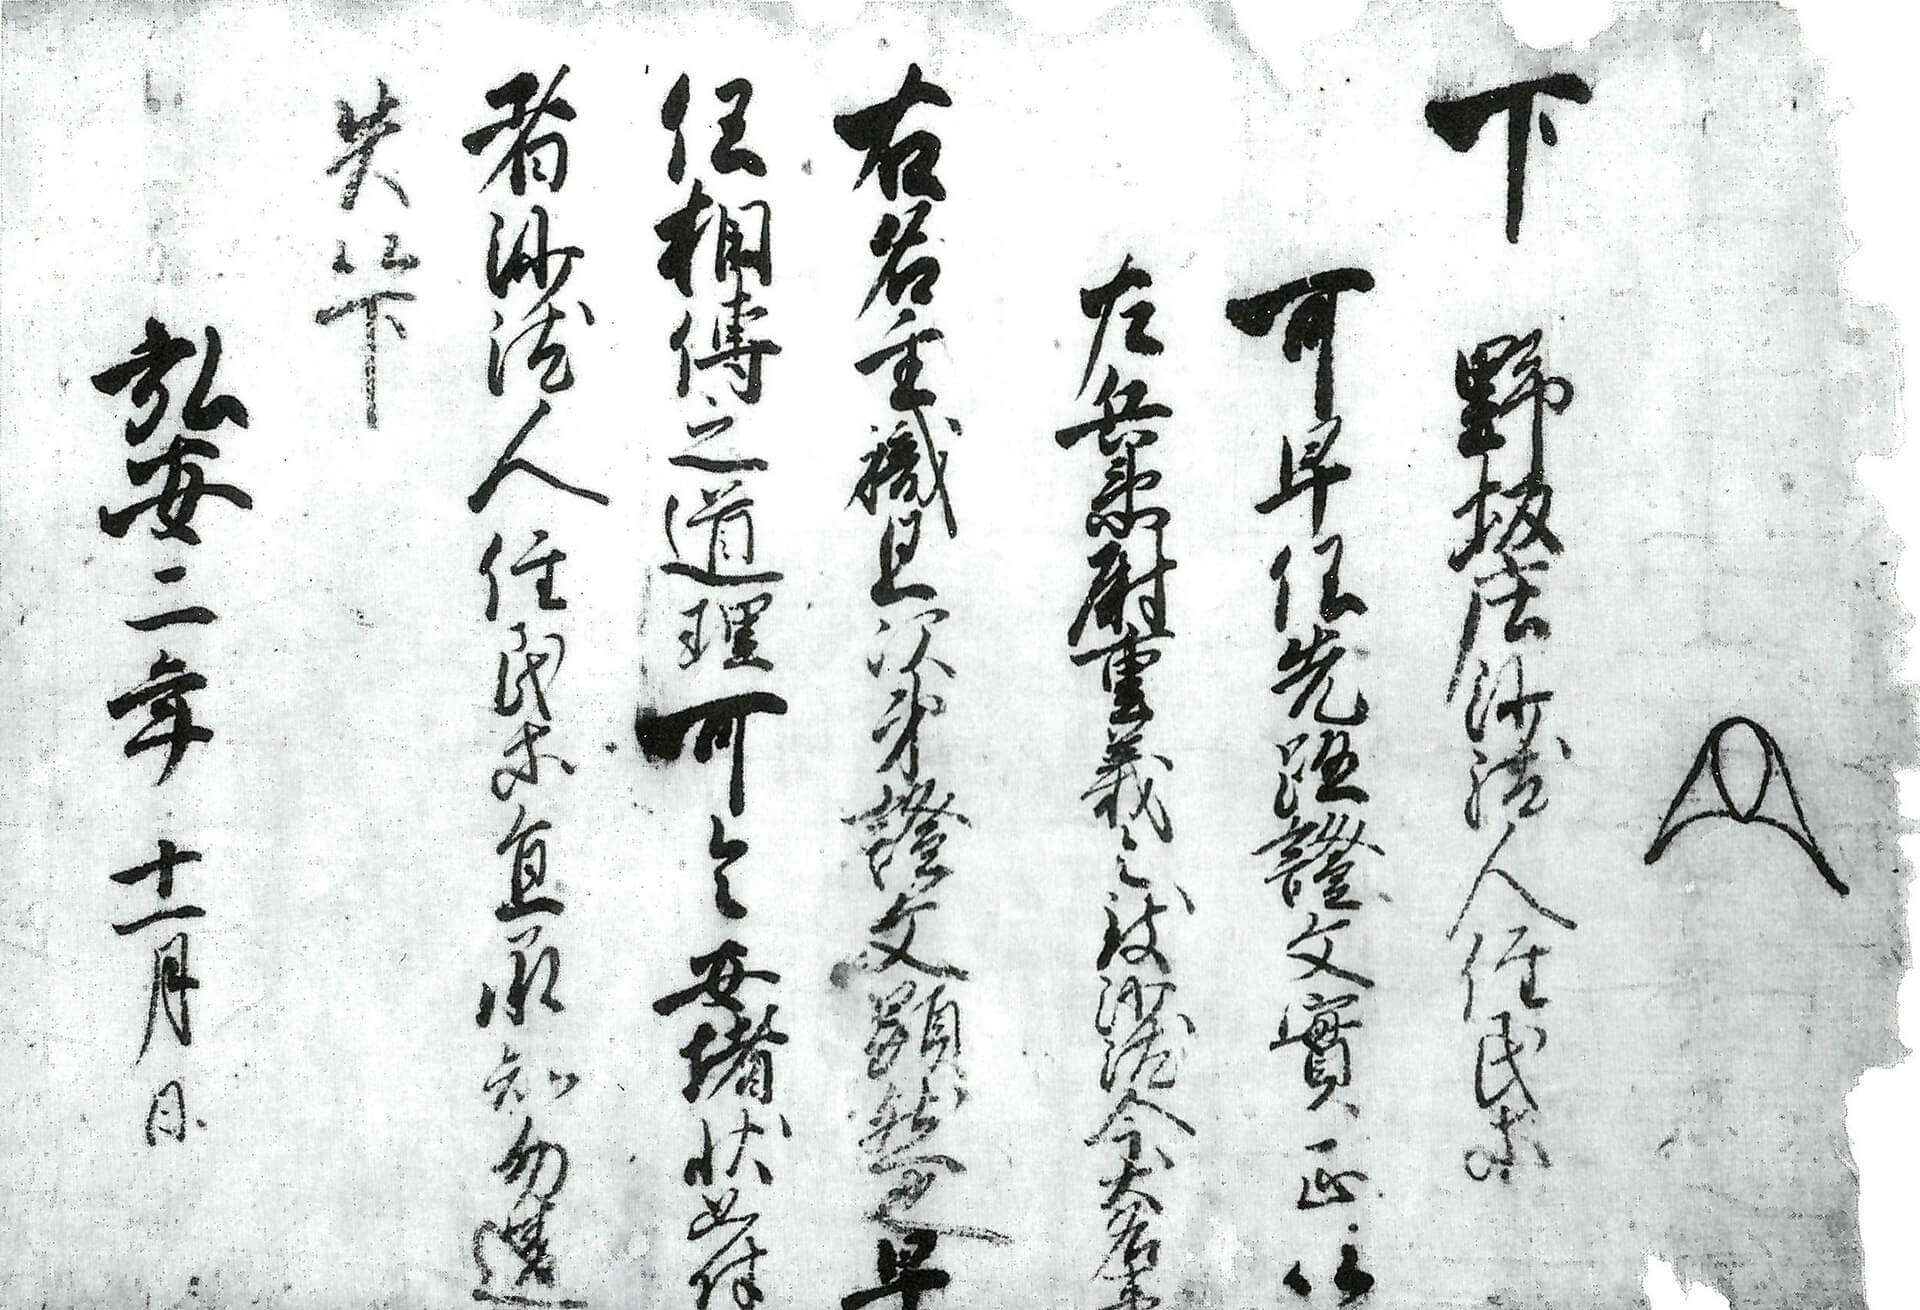 下　野坂庄沙汰人住民等
可早任先證文實正以
左兵衛尉重義之沙汰令大名
右名主職且次第證文顯然之早
任相傳之道理可令安堵状如件
者沙汰人住民等宜承知勿違
失以下
弘安二年十一月日